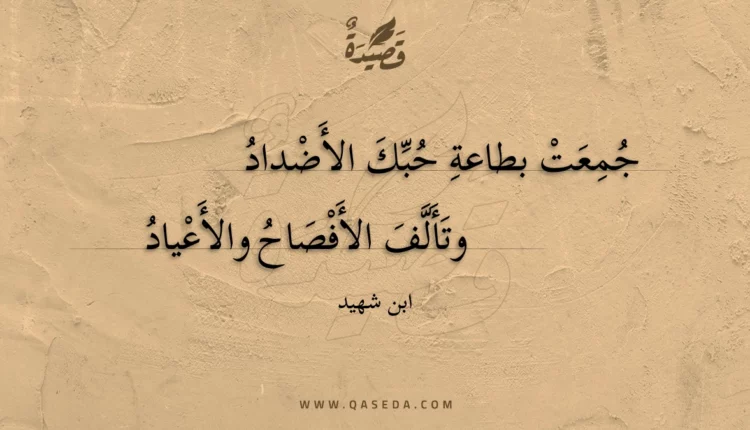 قَصِيدَةٌ
جُمِعَتْ بطاعةِ حُبِّكَ الأَضْدادُ
وتَأَلَّفَ الأَفْصَاحُ والأَعْيادُ
ابن شهيد
WWW.QASEDA.COM